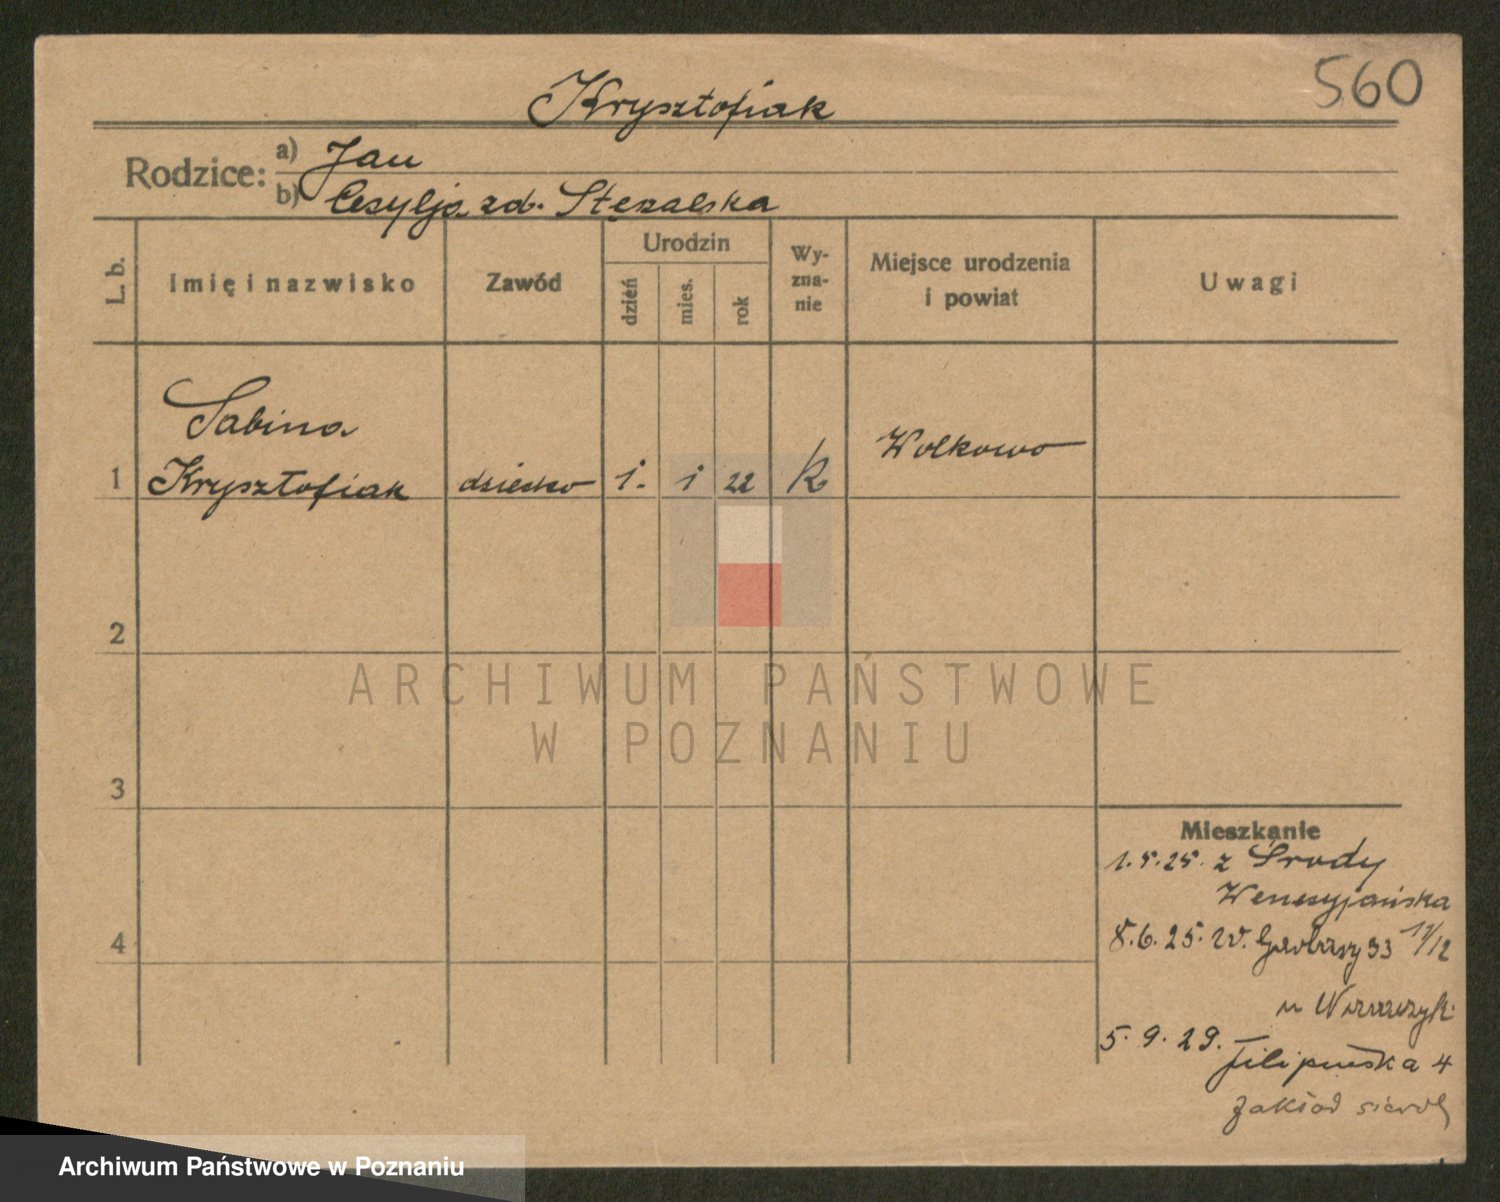 560
Krysztofiak
Rodzice:
a) Jan
b) Cesylja zd. Stęzalska
L. b.
Imię i nazwisko
Zawód
Urodzin
dzień
mies.
rok
Wy-
zna-
nie
Miejsce urodzenia
i powiat
Uwagi
Sabina
1 Krysztofiak dziecko 1. 1 22 k Wolkowo
2
ARCHIWUM PAŃSTWOWE
W POZNANIU
3
Mieszkanie
1.5.25. z Środy
Wenesyjańska
4
8.6.25. W. Garbary 33 11/12
u
5.9.29.
Filipińska 4
zakład sierot
Archiwum Państwowe w Poznaniu